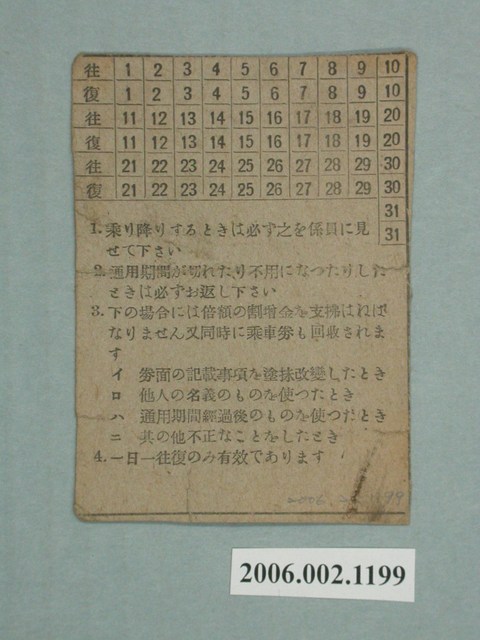 往 1 2 3 4 5 6 7 8 9 10
復 1 2 3 4 5 6 7 8 9 10
往 11 12 13 14 15 16 17 18 19 20
復 11 12 13 14 15 16 17 18 19 20
往 21 22 23 24 25 26 27 28 29 30
復 21 22 23 24 25 26 27 28 29 30
31
31
1. 乗り降りするときは必ず之を係員に見
せて下さい
2. 通用期間が切れたり不用になつたりした
ときは必ずお返し下さい
3. 下の場合には倍額の割増金を支拂はねば
なりません又同時に乗車券も回收されま
す
イ 券面の記載事項を塗抹改變したとき
ロ 他人の名義のものを使つたとき
ハ 通用期間經過後のものを使つたとき
ニ 其の他不正なことをしたとき
4. 一日一往復のみ有效であります
2006.002.1199